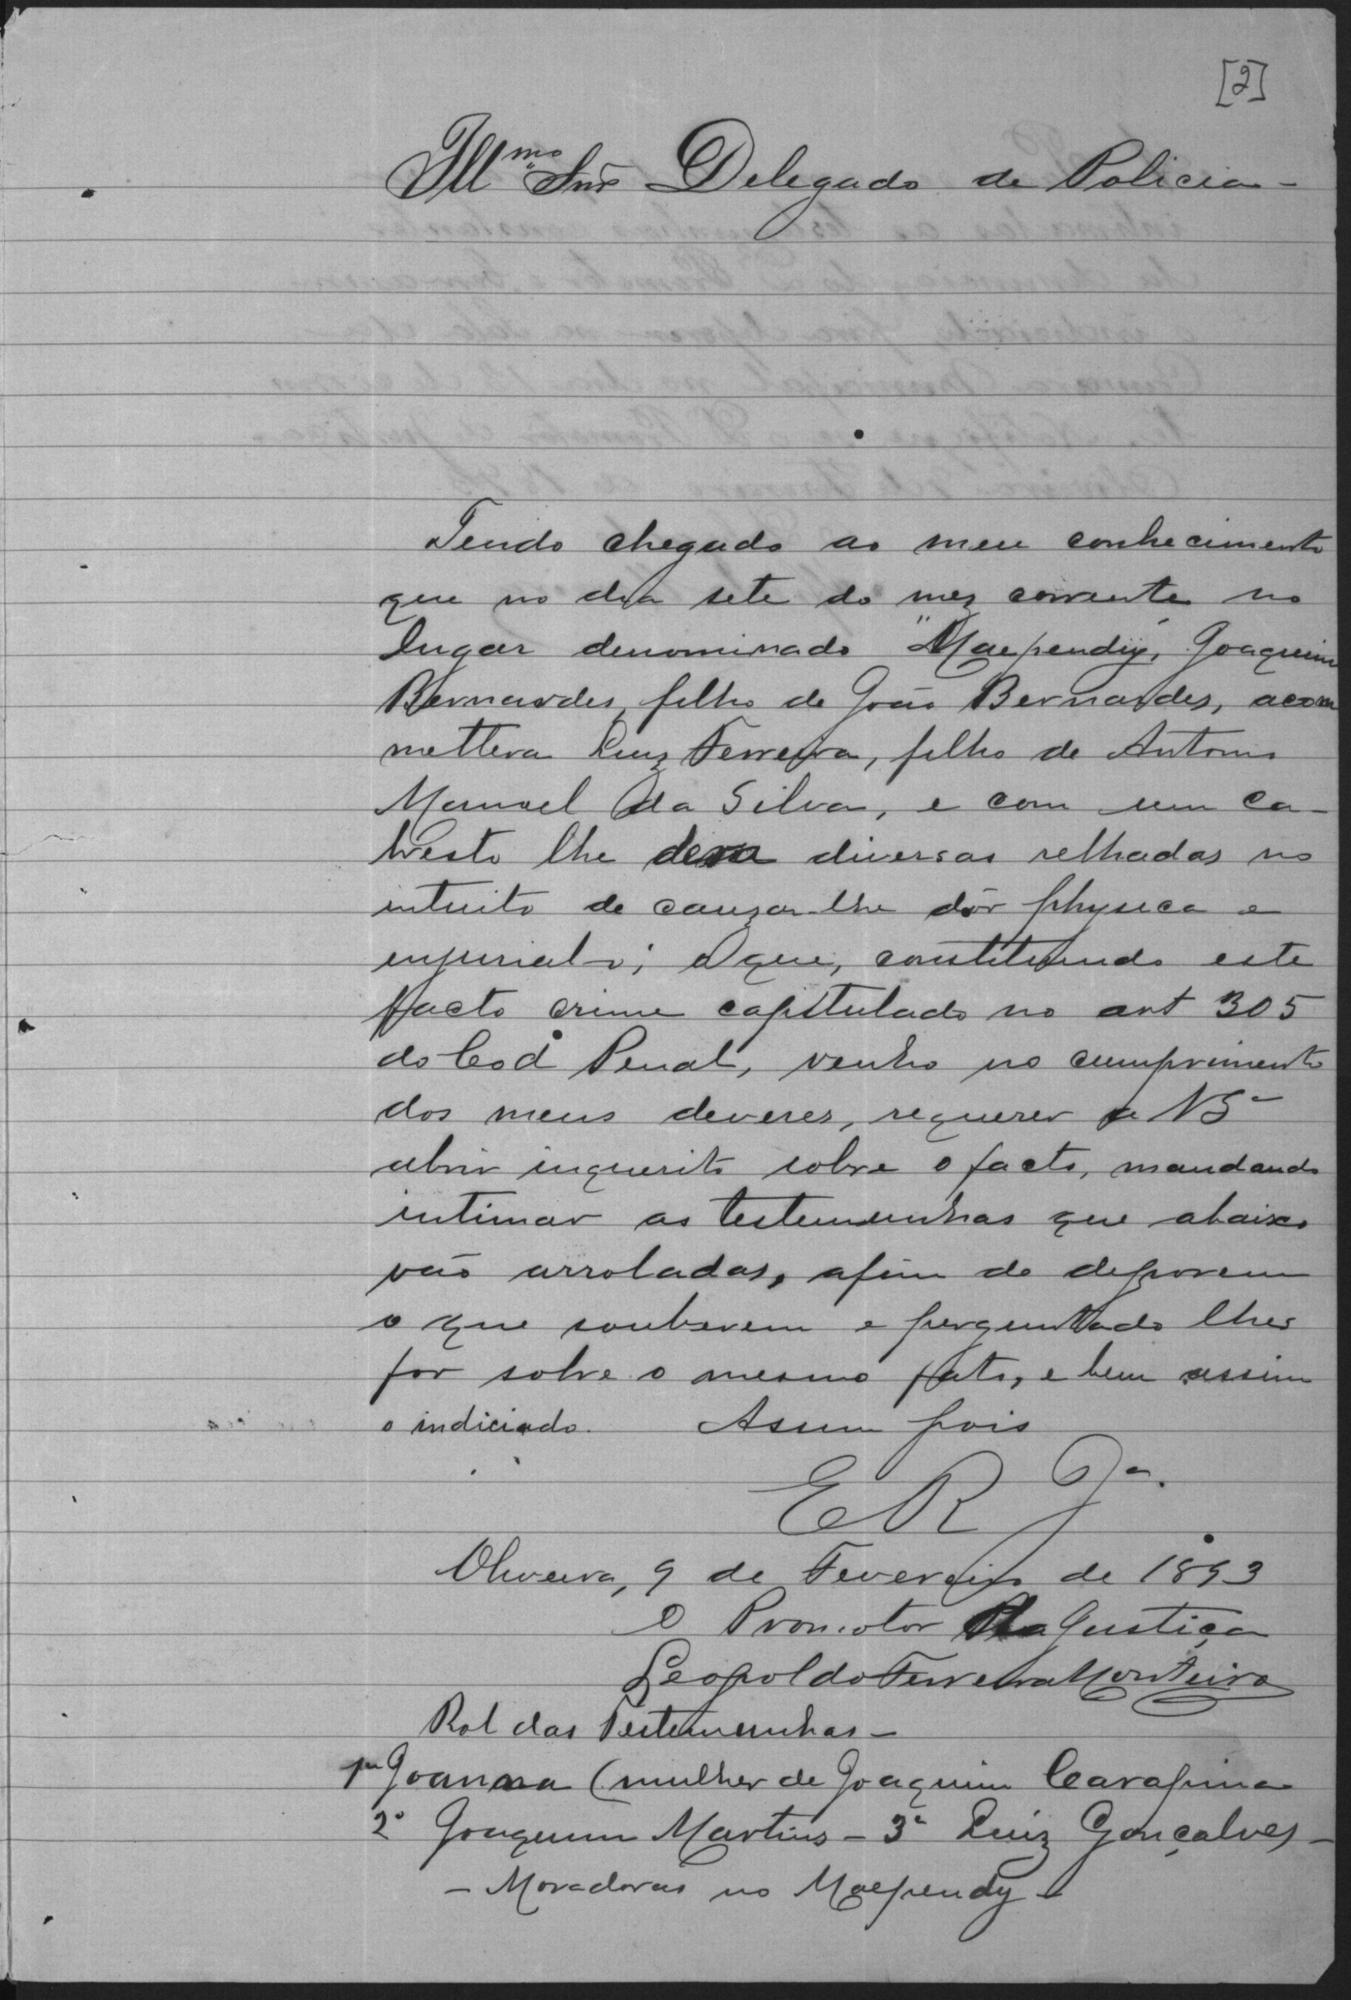 [2]
Illmo Snr Delegado de Policia -
Tendo chegado ao meu conhecimento
que no dia sete do mez corrente no
lugar denominado "Maependy", Joaquim
Bernardes, filho de João Bernardes, acom
mettera Luiz Ferreira, filho de Antonio
Manoel da Silva, e com um ca-
bresto lhe dera diversas relhadas no
intuito de cauzar-lhe dôr physica e
injurial-o; o que, constituindo este
facto crime capitulado no art 305
do Cod. Penal, venho no cumprimento
dos meus deveres, requerer a VSª
abrir inquerito sobre o facto, mandando
intimar as testemunhas que abaixo
vão arroladas, afim de deporem
o que souberem e perguntado lhes
for sobre o mesmo fato, e bem assim
o indiciado. Assim pois
E R Jª.
Oliveira, 9 de Fevereiro de 1893
O Promotor da Justiça
Leopoldo Ferreira Monteiro
Rol das Testemunhas -
1ª Joanna (mulher de Joaquim Carapina
2º Joaquim Martins - 3ª Luiz Gonçalves -
- Moradores no Maependy -